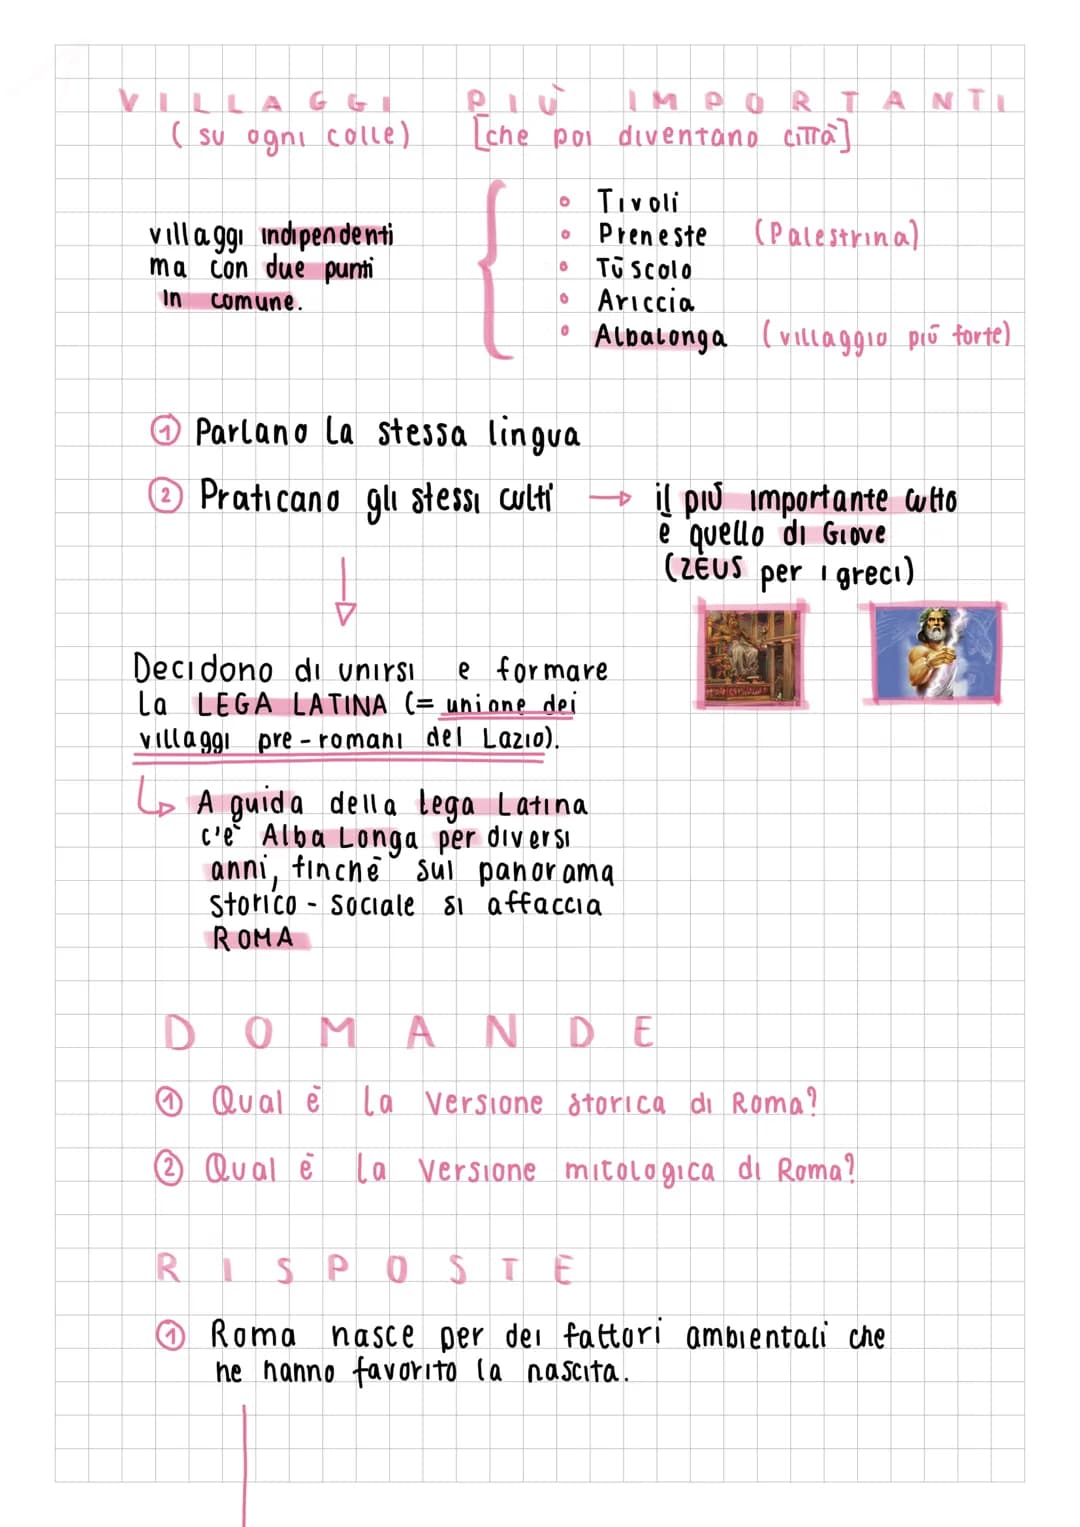 VILLAGGI PIÙ IMPORTANTI
(su ogni colle) [che poi diventano città]
villaggi indipendenti
ma con due punti
in comune.
• Tivoli
• Preneste (Palestrina)
• Tūscolo
• Ariccia
• Albalonga (villaggio più forte)
① Parlano la stessa lingua
② Praticano gli stessi culti → il più importante culto
è quello di Giove
(ZEUS per i greci)
Decidono di unirsi e formare
la LEGA LATINA (= unione dei
villaggi pre-romani del Lazio).
↳ A guida della lega Latina
c'è Alba Longa per diversi
anni, finchè sul panorama
storico - sociale si affaccia
ROMA
DOMANDE
① Qual è la versione storica di Roma?
② Qual è la versione mitologica di Roma?
RISPOSTE
① Roma nasce per dei fattori ambientali che
ne hanno favorito la nascita.